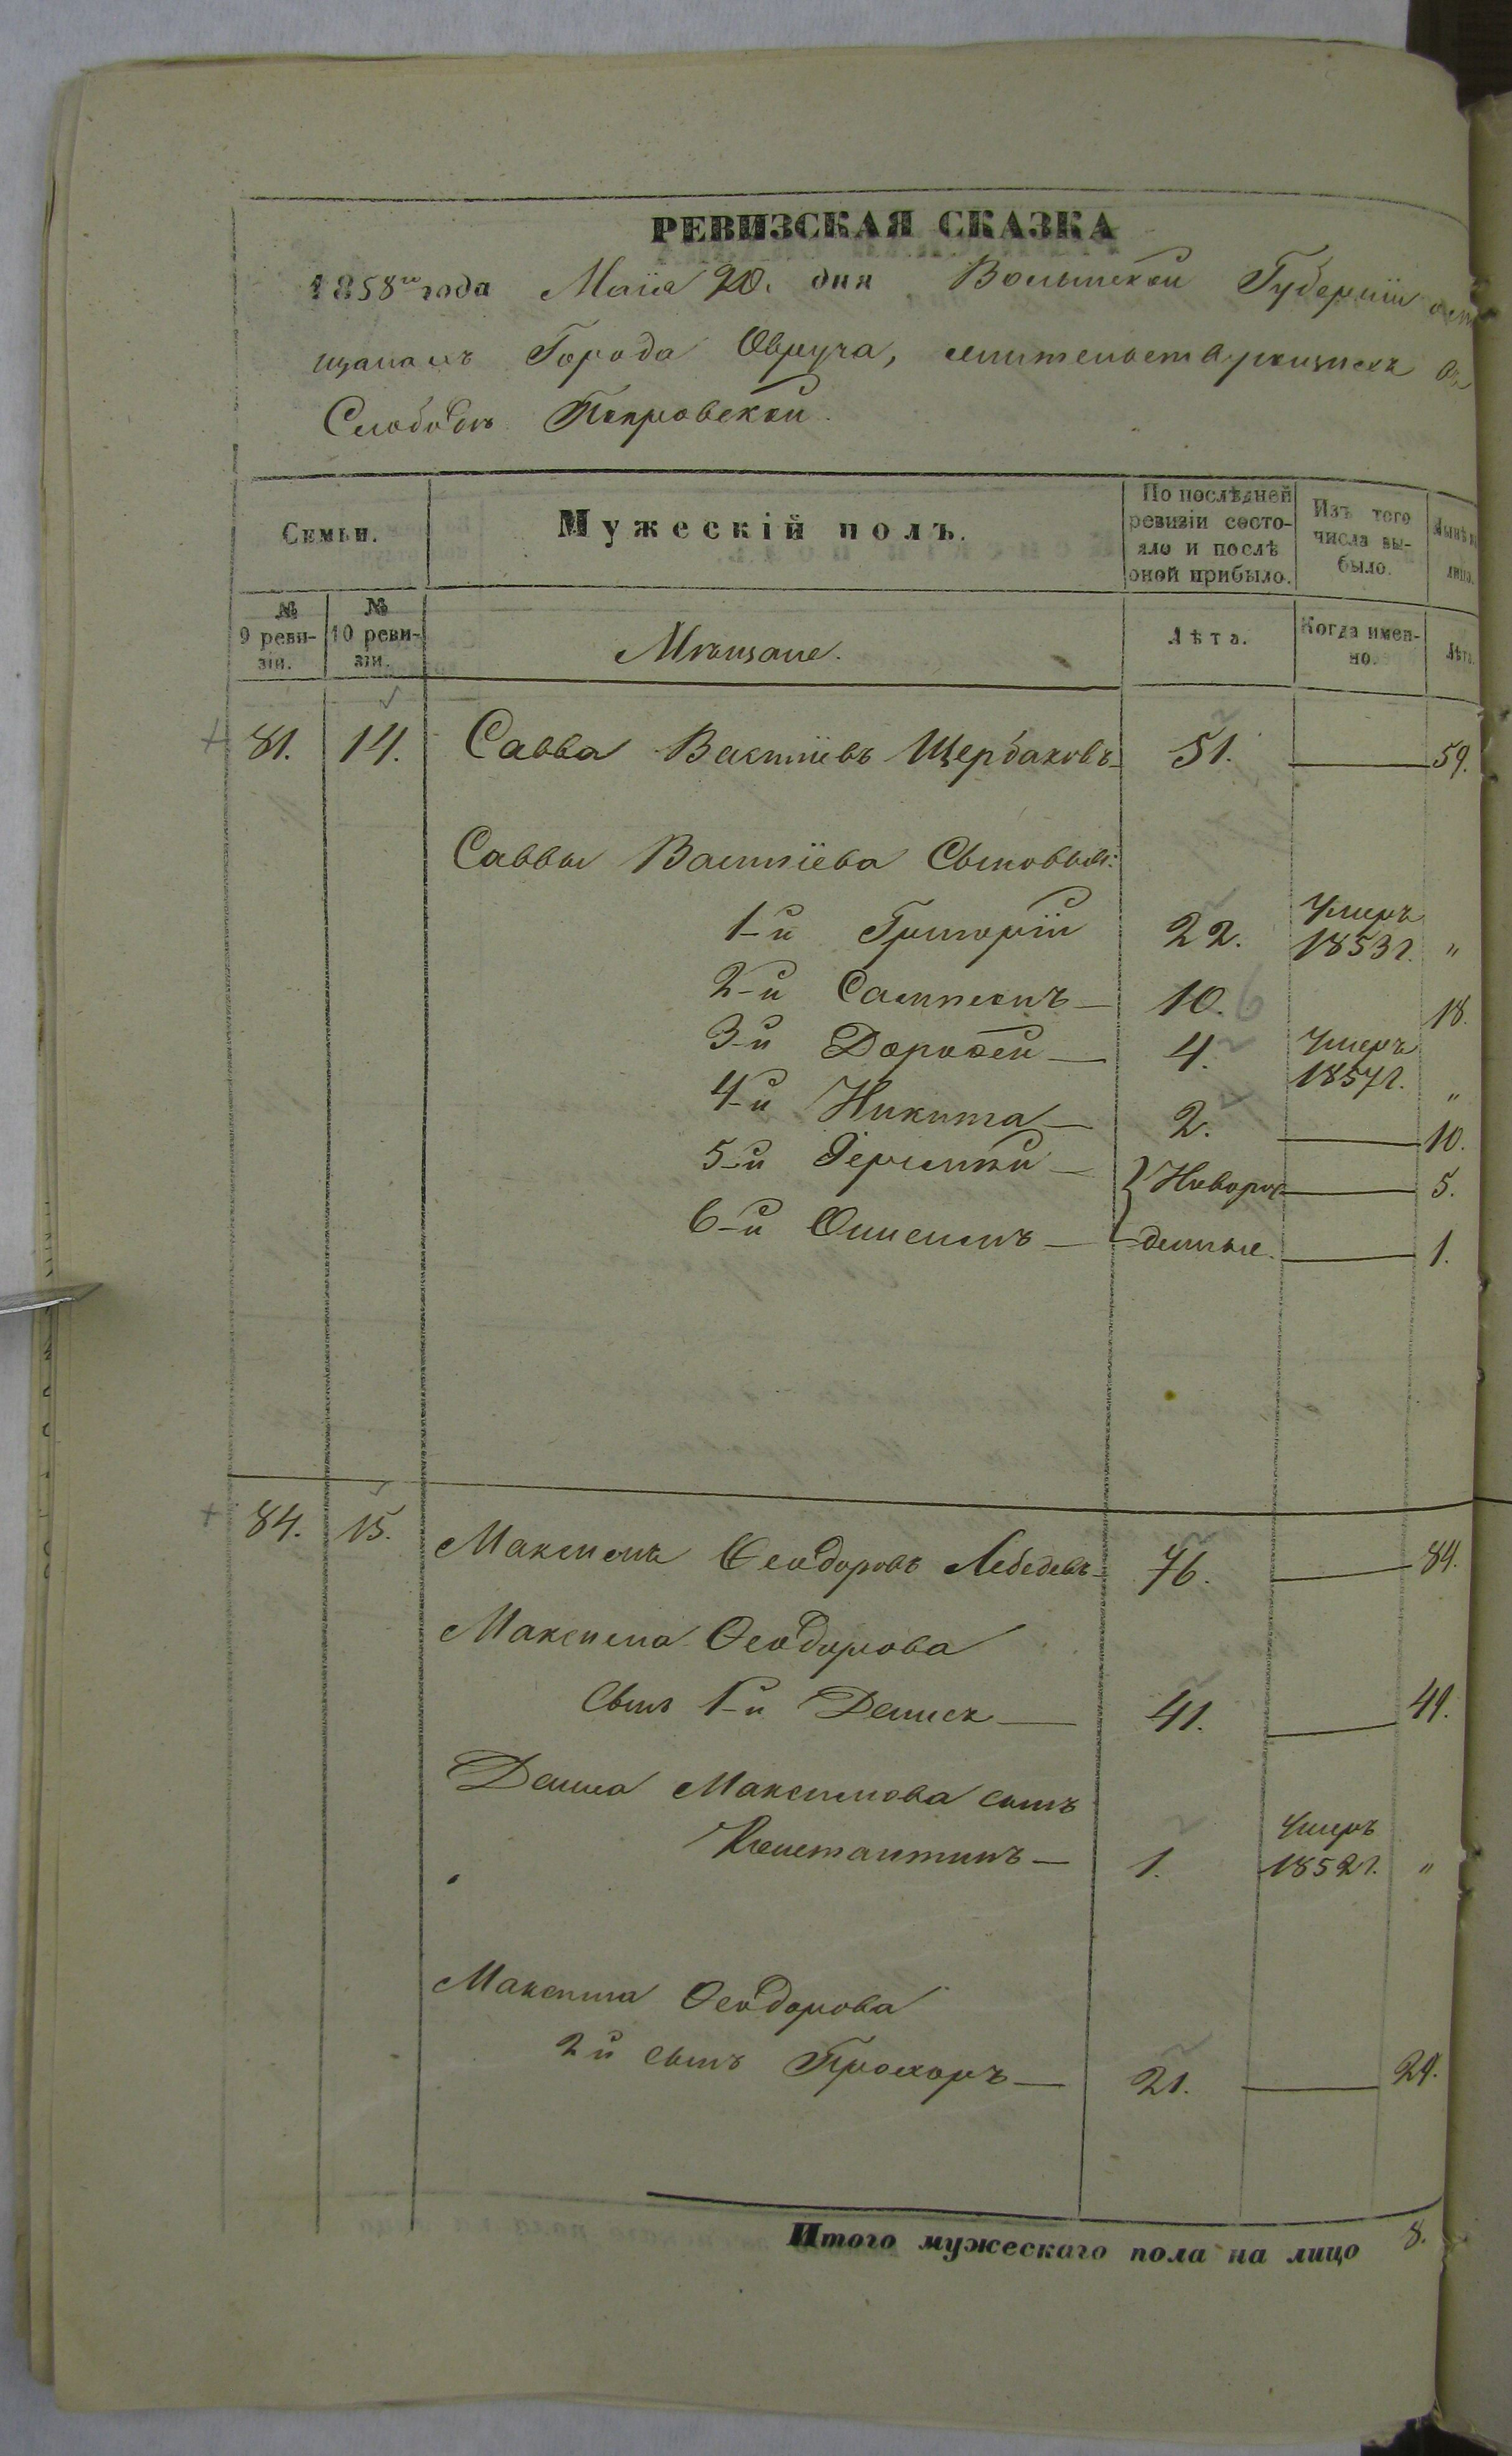 РЕВИЗСКАЯ СКАЗКА
1858го года Маія 20. дня Волынской Губерніи
щанамъ Города Овруча,
Слободы Покровской.
Семьи.
Мужескій полъ.
По послѣдней ревизіи состо-
яло и послѣ
оной прибыло.
Изъ того
числа вы-
было.
Нынѣ на
лицо.
№
9 реви-
зіи.
№
10 реви-
зіи.
Мѣщане.
Лѣта.
Когда имен-
но.
Лѣта.
81. 14. Савва Щербаковъ 51. 59.
Саввы Сыновья:
1-й Григорій 22. Умеръ 1853 г. "
2-й Сампсонъ 10. 18.
3-й Дорофей 4. Умеръ 1857 г. "
4-й Никита 2. 10.
5-й Новорож 5.
6-й Онисимъ денные. 1.
84. 15. Максимъ Ѳеодоровъ Лебедевъ 76. 84.
Максима Ѳеодорова
сынъ 1-й Денисъ 41. 49.
Дениса Максимова сынъ
Константинъ 1. Умеръ 1852 г. "
Максима Ѳеодорова
2й сынъ Прохоръ 21. 29.
Итого мужескаго пола на лицо 8.